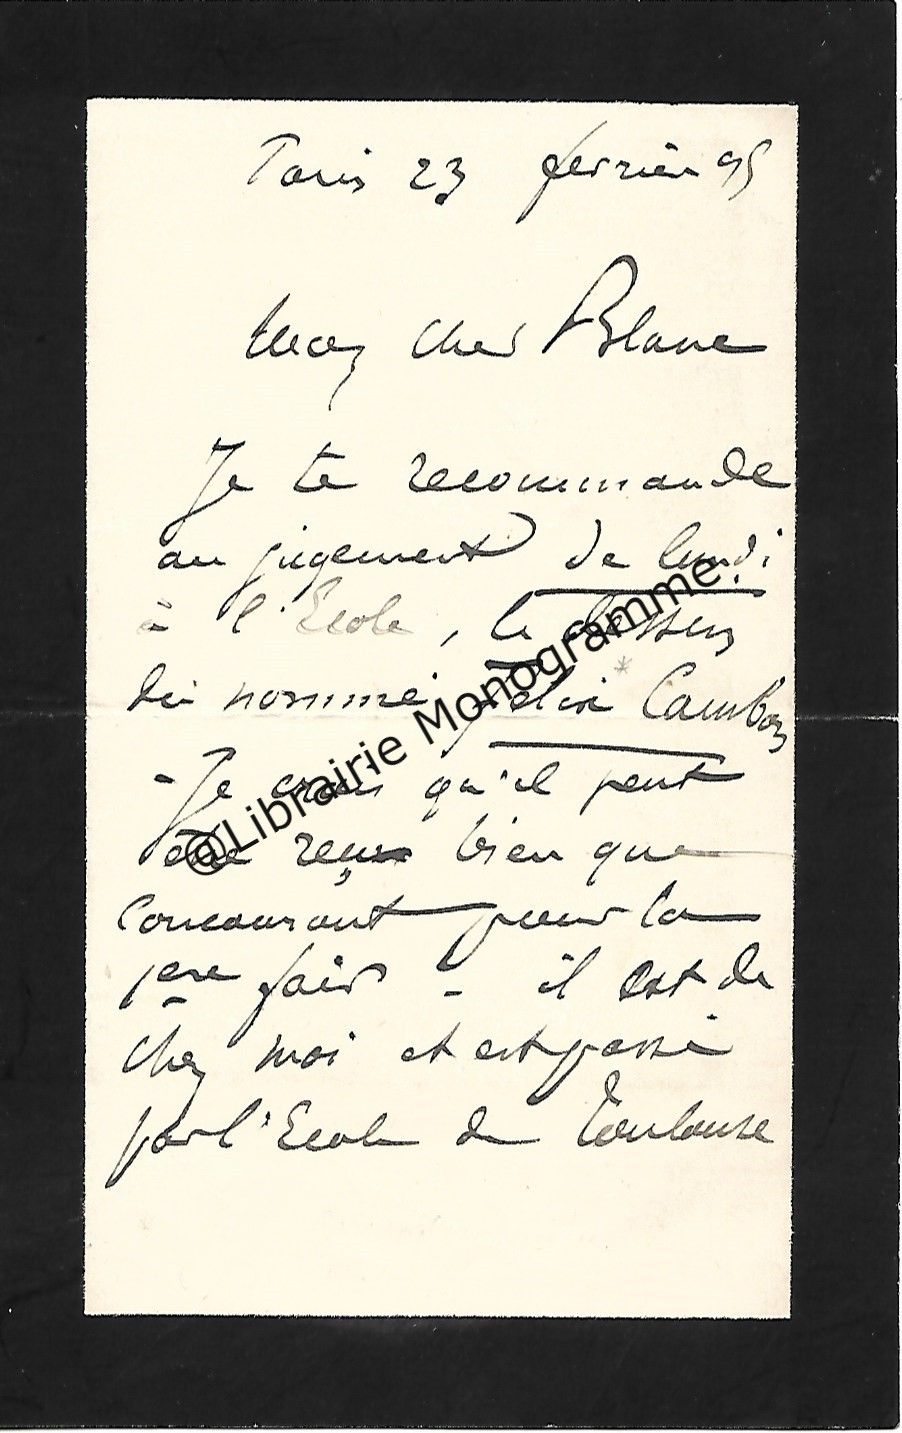 Paris 23 fevrier 95
Mon cher Blanc
Je te recommande
au jugement de lundi
à l'Ecole, le dessin
du nommé Felix Cambon
- Je crois qu'il peut
être reçu bien que
concourant pour la
1ere fois - il est de
chez moi et est passé
par l'Ecole de Toulouse
@Librairie Monogramme.